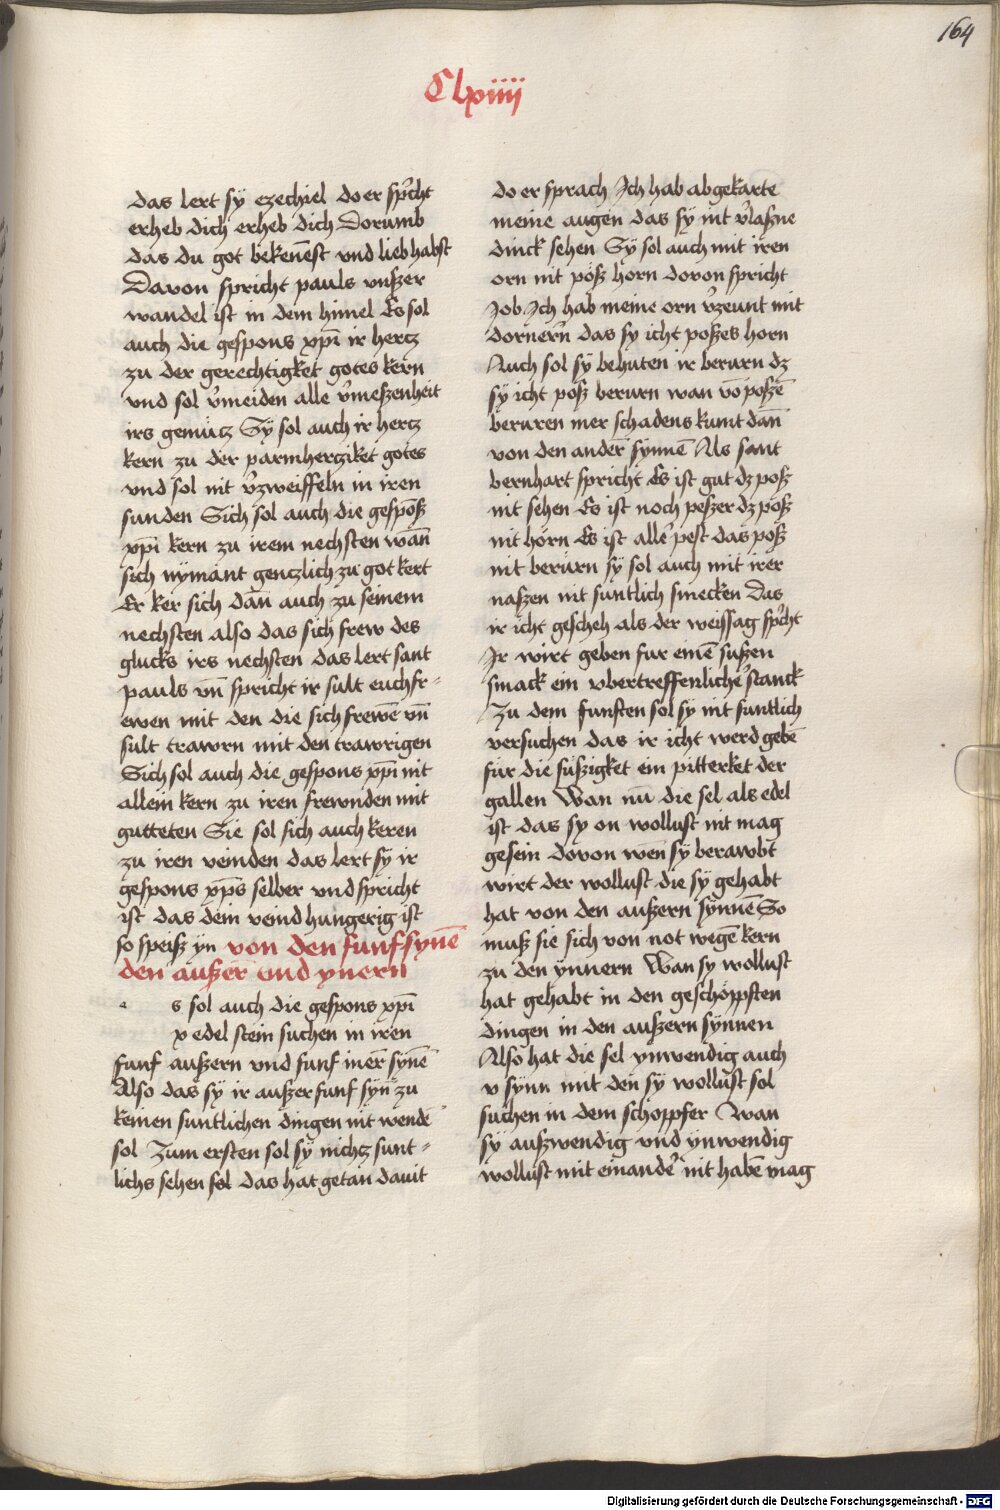 164
Clxiiij
das lert sÿ ezechiel do er sp̄cht
erheb dich erheb dich Dorumb
das du got bekeñest vnd lieb habst
Davon spricht pauls vnßer
wandel ist in dem himel Es sol
auch die gespons xp̄i ir hercz
zu der gerechtigket gotes kern
vnd sol v̉meiden alle v̉meßenheit
irs gemütz Sÿ sol auch ir hercz
kern zu der parmhercziket gotes
vnd sol nit v̉zweiffeln in iren
sunden Sich sol auch die gespōß
xp̄i kern zu irem nechsten wan̄
sich nÿmant genczlich zu got kert
Er ker sich dan̄ auch zu seinem
nechsten also das sich frew des
glucks irs nechsten das lert sant
pauls vn̄ spricht ir sult euch fr⸗
ewen mit den die sich frewē vn̄
sult trawrn mit den trawrigen
Sich sol auch die gespons xp̄i nit
allein kern zu iren frewnden mit
gutteten Sie sol sich auch keren
zu iren veinden das lert sÿ ir
gespons xp̄s selber vnd spricht
ist das dein veind hungerig ist
so speiß ÿn von den funf synē
den außer vnd ynern
s sol auch die gespons xp̄i
v edel stein suchen in iren
funf außern vnd funf iner̄ synē
Also das sy ir außer funf syn̄ zu
keinen suntlichen dingen nit wende
sol Zum ersten sol sÿ nichcz sunt⸗
lichs sehen sol das hat getan dauit
do er sprach Ich hab abgekarte
meine augen das sy nit v̉laßne
dinck sehen Sÿ sol auch mit iren
orn nit pöß horn doron spricht
Job Ich hab meine orn v̉zeunt mit
dornern̉ das sy icht poßes horn
Auch sol sÿ behuten ir berurn dz
sÿ icht poß berurn wan vō poßē
beruren mer schadens kumt dan̄
von den ander̄ synnē Als sant
bernhart spricht Es ist gut dz poß
nit sehen Es ist noch peßer dz poß
nit horn Es ist aller̉ pest das poß
nit berürn sy sol auch mit irer
naßen nit suntlich smecken Das
ir icht gescheh als der weissag sp̉cht
Ir wirt geben fur einē sußen
smack ein vbertreffenlichẻ stanck
Zu dem funften sol sy nit suntlich
versuchen das ir icht werd gebē
fur die süßigket ein pitterket der
gallen Wan nū die sel als edel
ist das sy on wollust nit mag
gesein dovon wen sÿ berawbt
wirt der wollust die sÿ gehabt
hat von den außern sÿnnē So
muß sie sich von not wegē kern
zu den ÿnnern Wan sy wollust
hat gehabt in den geschöppften
dingen in den außern sÿnnen
Also hat die sel ynwendig auch
v synn mit den sÿ wollust sol
suchen in dem schöppfer Wan
sÿ außwendig vnd ÿnwendig
wollust mit einandẻ nit habē mag
Digitalisierung gefördert durch die Deutsche Forschungsgemeinschaft - DFG